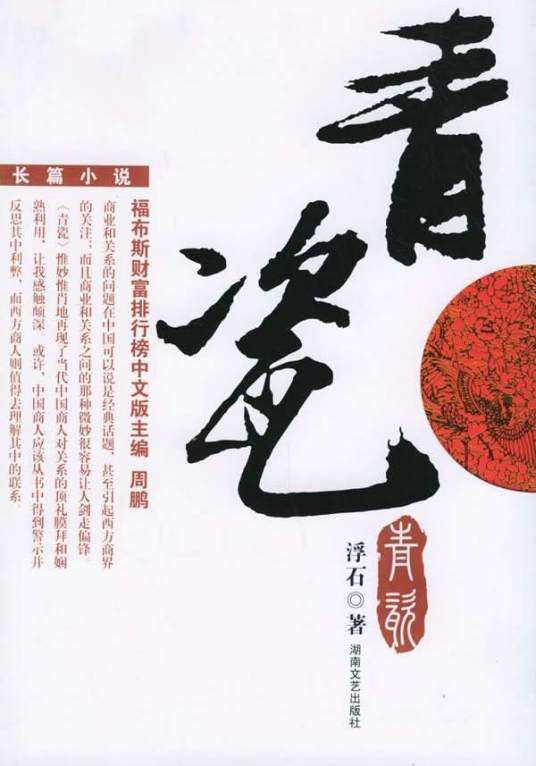 青瓷
长篇小说
福布斯财富排行榜中文版主编 周鹏
商业和关系的问题在中国可以说是经典话题，甚至引起西方商界
的关注；而且商业和关系之间的那种微妙很容易让人剑走偏锋。
《青瓷》惟妙惟肖地再现了当代中国商人对关系的顶礼膜拜和娴
熟利用，让我感触颇深。或许，中国商人应该从书中得到警示并
反思其中利弊，而西方商人则值得去理解其中的联系。
青瓷
浮石◎著
湖南文艺出版社